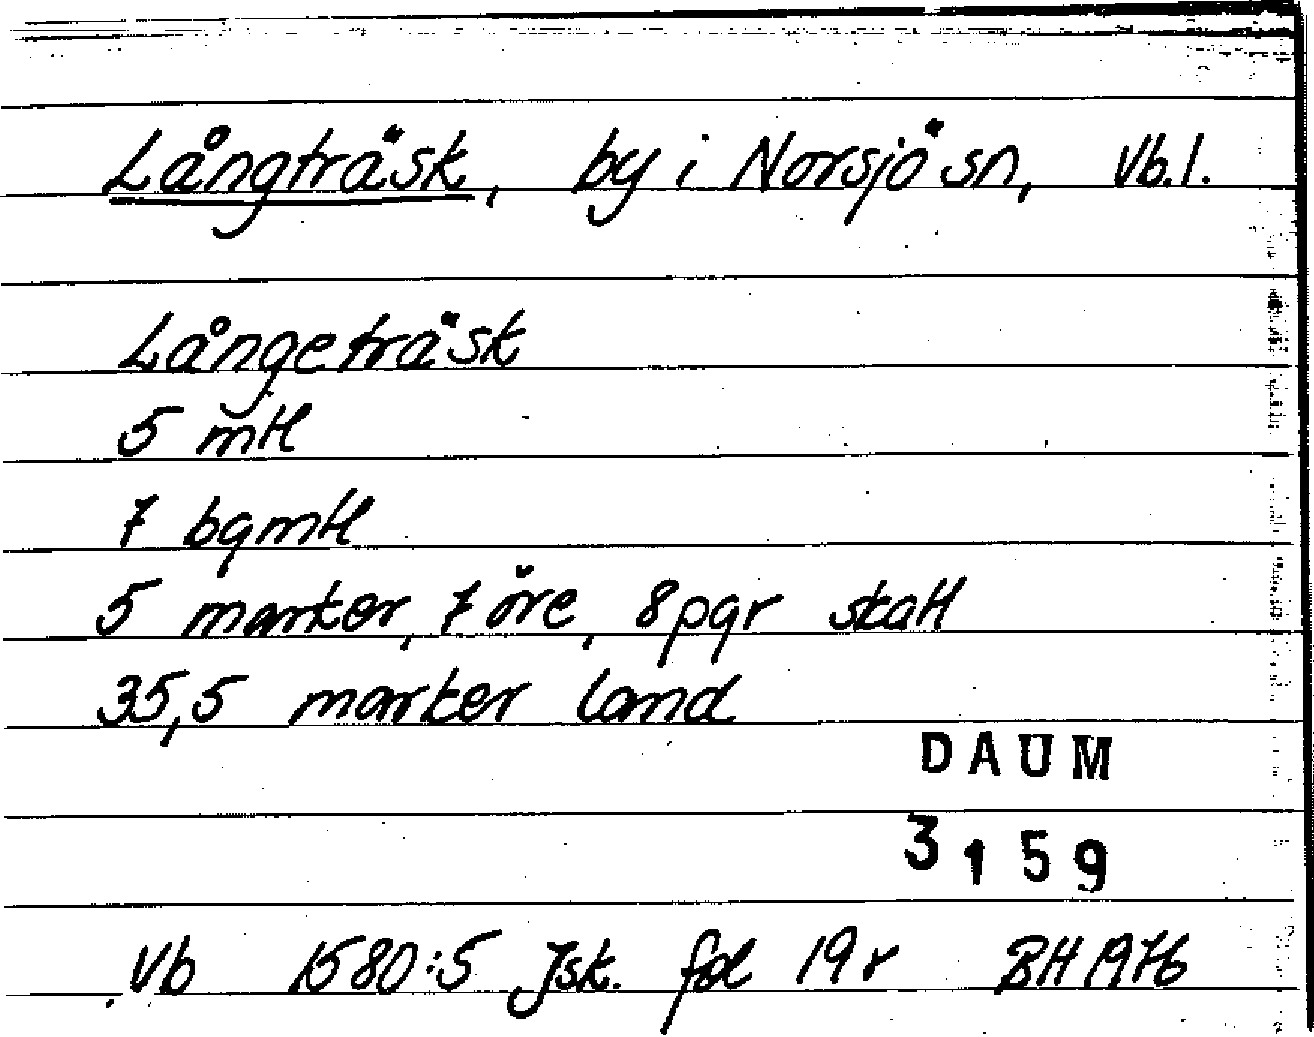 Långträsk, by i Norsjö sn, Vb.l.
Långeträsk
5 mtl
7 bgmtl
5 marker, 7 öre, 8 pgr skatt
35,5 marker land
DAUM
3159
Vb 1580:5 Jsk. fol 19 r BH 1976